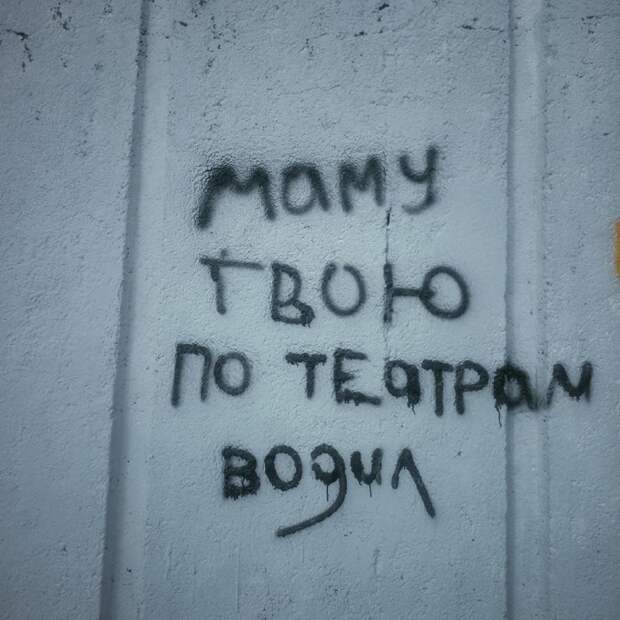 маму
твою
по театрам
водил